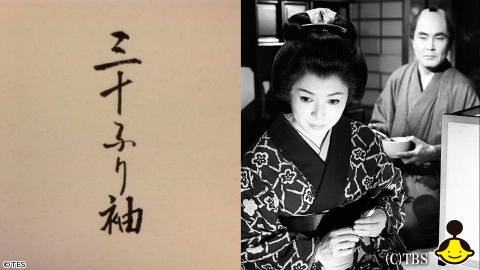 三十ふり袖
©TBS
(C)TBS